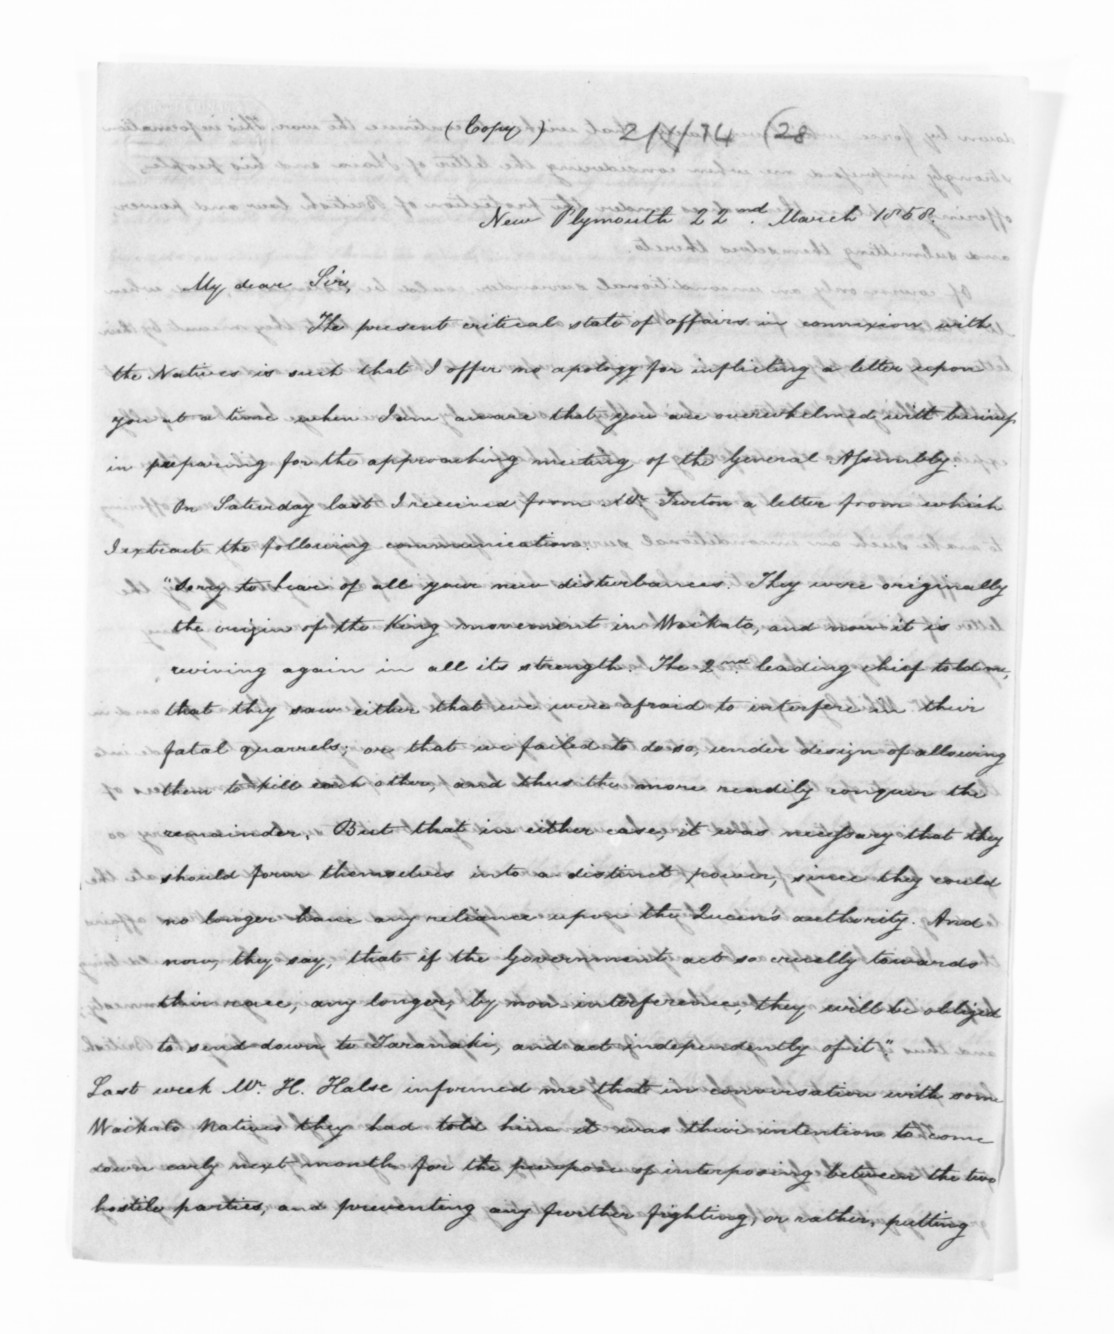 (Copy) 2/1/74 (28
New Plymouth 22nd. March 1858.
My dear Sir,
The present critical state of affairs in connexion with
the Natives is such that I offer no apology for inflicting a letter upon
you at a time when I am aware that you are overwhelmed with business
in preparing for the approaching meeting of the General Assembly.
On Saturday last I received from Mr. Turton a letter from which
I extract the following communication.
"Sorry to hear of all your new disturbances. They were originally
the origin of the King movement in Waikato, and now it is
reviving again in all its strength. The 2nd. leading chief told me,
that they saw either that we were afraid to interfere in their
fatal quarrels; or that we failed to do so, under design of allowing
them to kill each other, and thus the more readily conquer the
remainder. But that in either case, it was necessary that they
should form themselves into a distinct power, since they could
no longer have any reliance upon the Queen's authority. And
now, they say, that if the Government act so cruelly towards
their race, any longer, by non-interference, they will be obliged
to send down to Taranaki, and act independently of it"
Last week Mr. H. Halse informed me that in conversation with some
Waikato Natives they had told him it was their intention to come
down early next month for the purpose of interposing between the two
hostile parties, and preventing any further fighting, or rather, putting